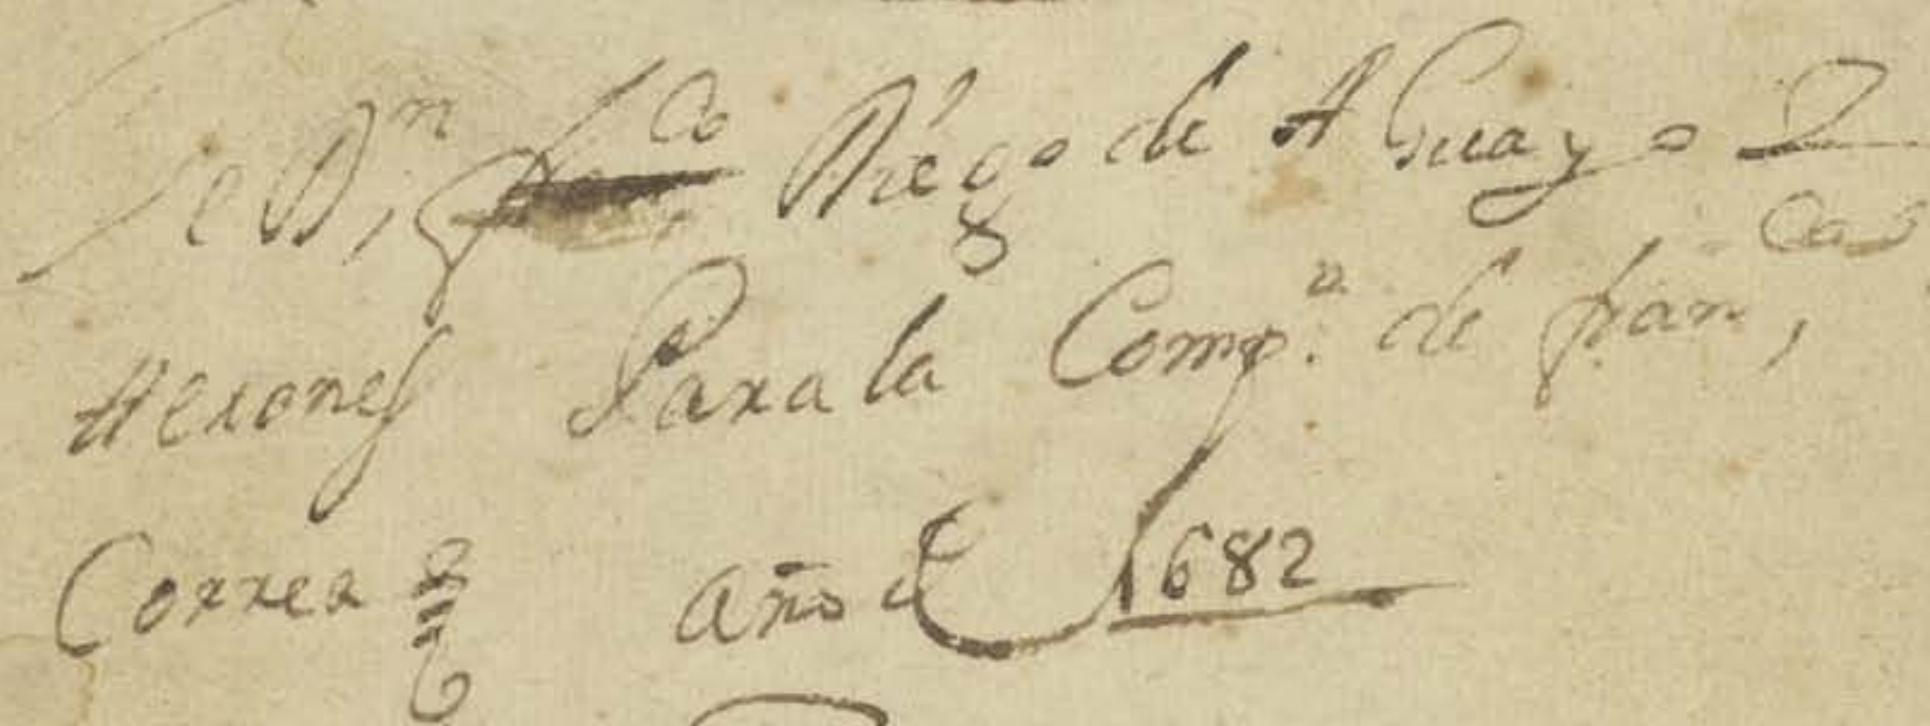 De Dn, fco Diego de AGuayo
Uexones Paxa la Compa. de franco,
Correa año de 1682